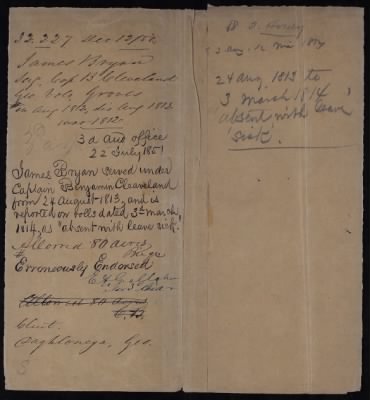 32,227 Dec 12/50
James Bryan
Cap B Cleveland
Geo. Vols
Aug 1813, dis Aug 1813
war 1812
3d Aud office
22 July 1851
James Bryan served under
Captain Benjamin Cleaveland
from 24 August 1813, and is
reported on rolls dated 3d March,
1814, as "absent with leave sick".
Allowed 80 acres
Erroneously Endorsed
Allowed 80 acres
Clint.
Dahlonega, Geo.
24 Aug 1813 to
3 March 1814
absent with leave
sick.